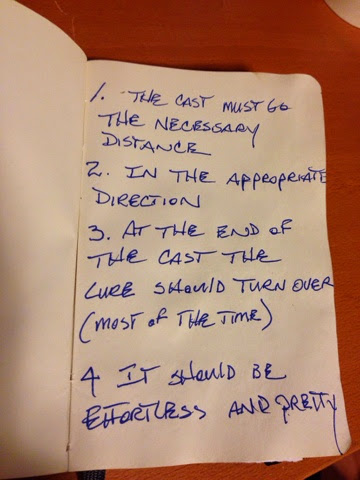 1. THE CAST MUST GO
THE NECESSARY
DISTANCE
2. IN THE APPROPRIATE
DIRECTION
3. AT THE END OF
THE CAST THE
LURE SHOULD TURN OVER
(MOST OF THE TIME)
4 IT SHOULD BE
EFFORTLESS AND PRETTY